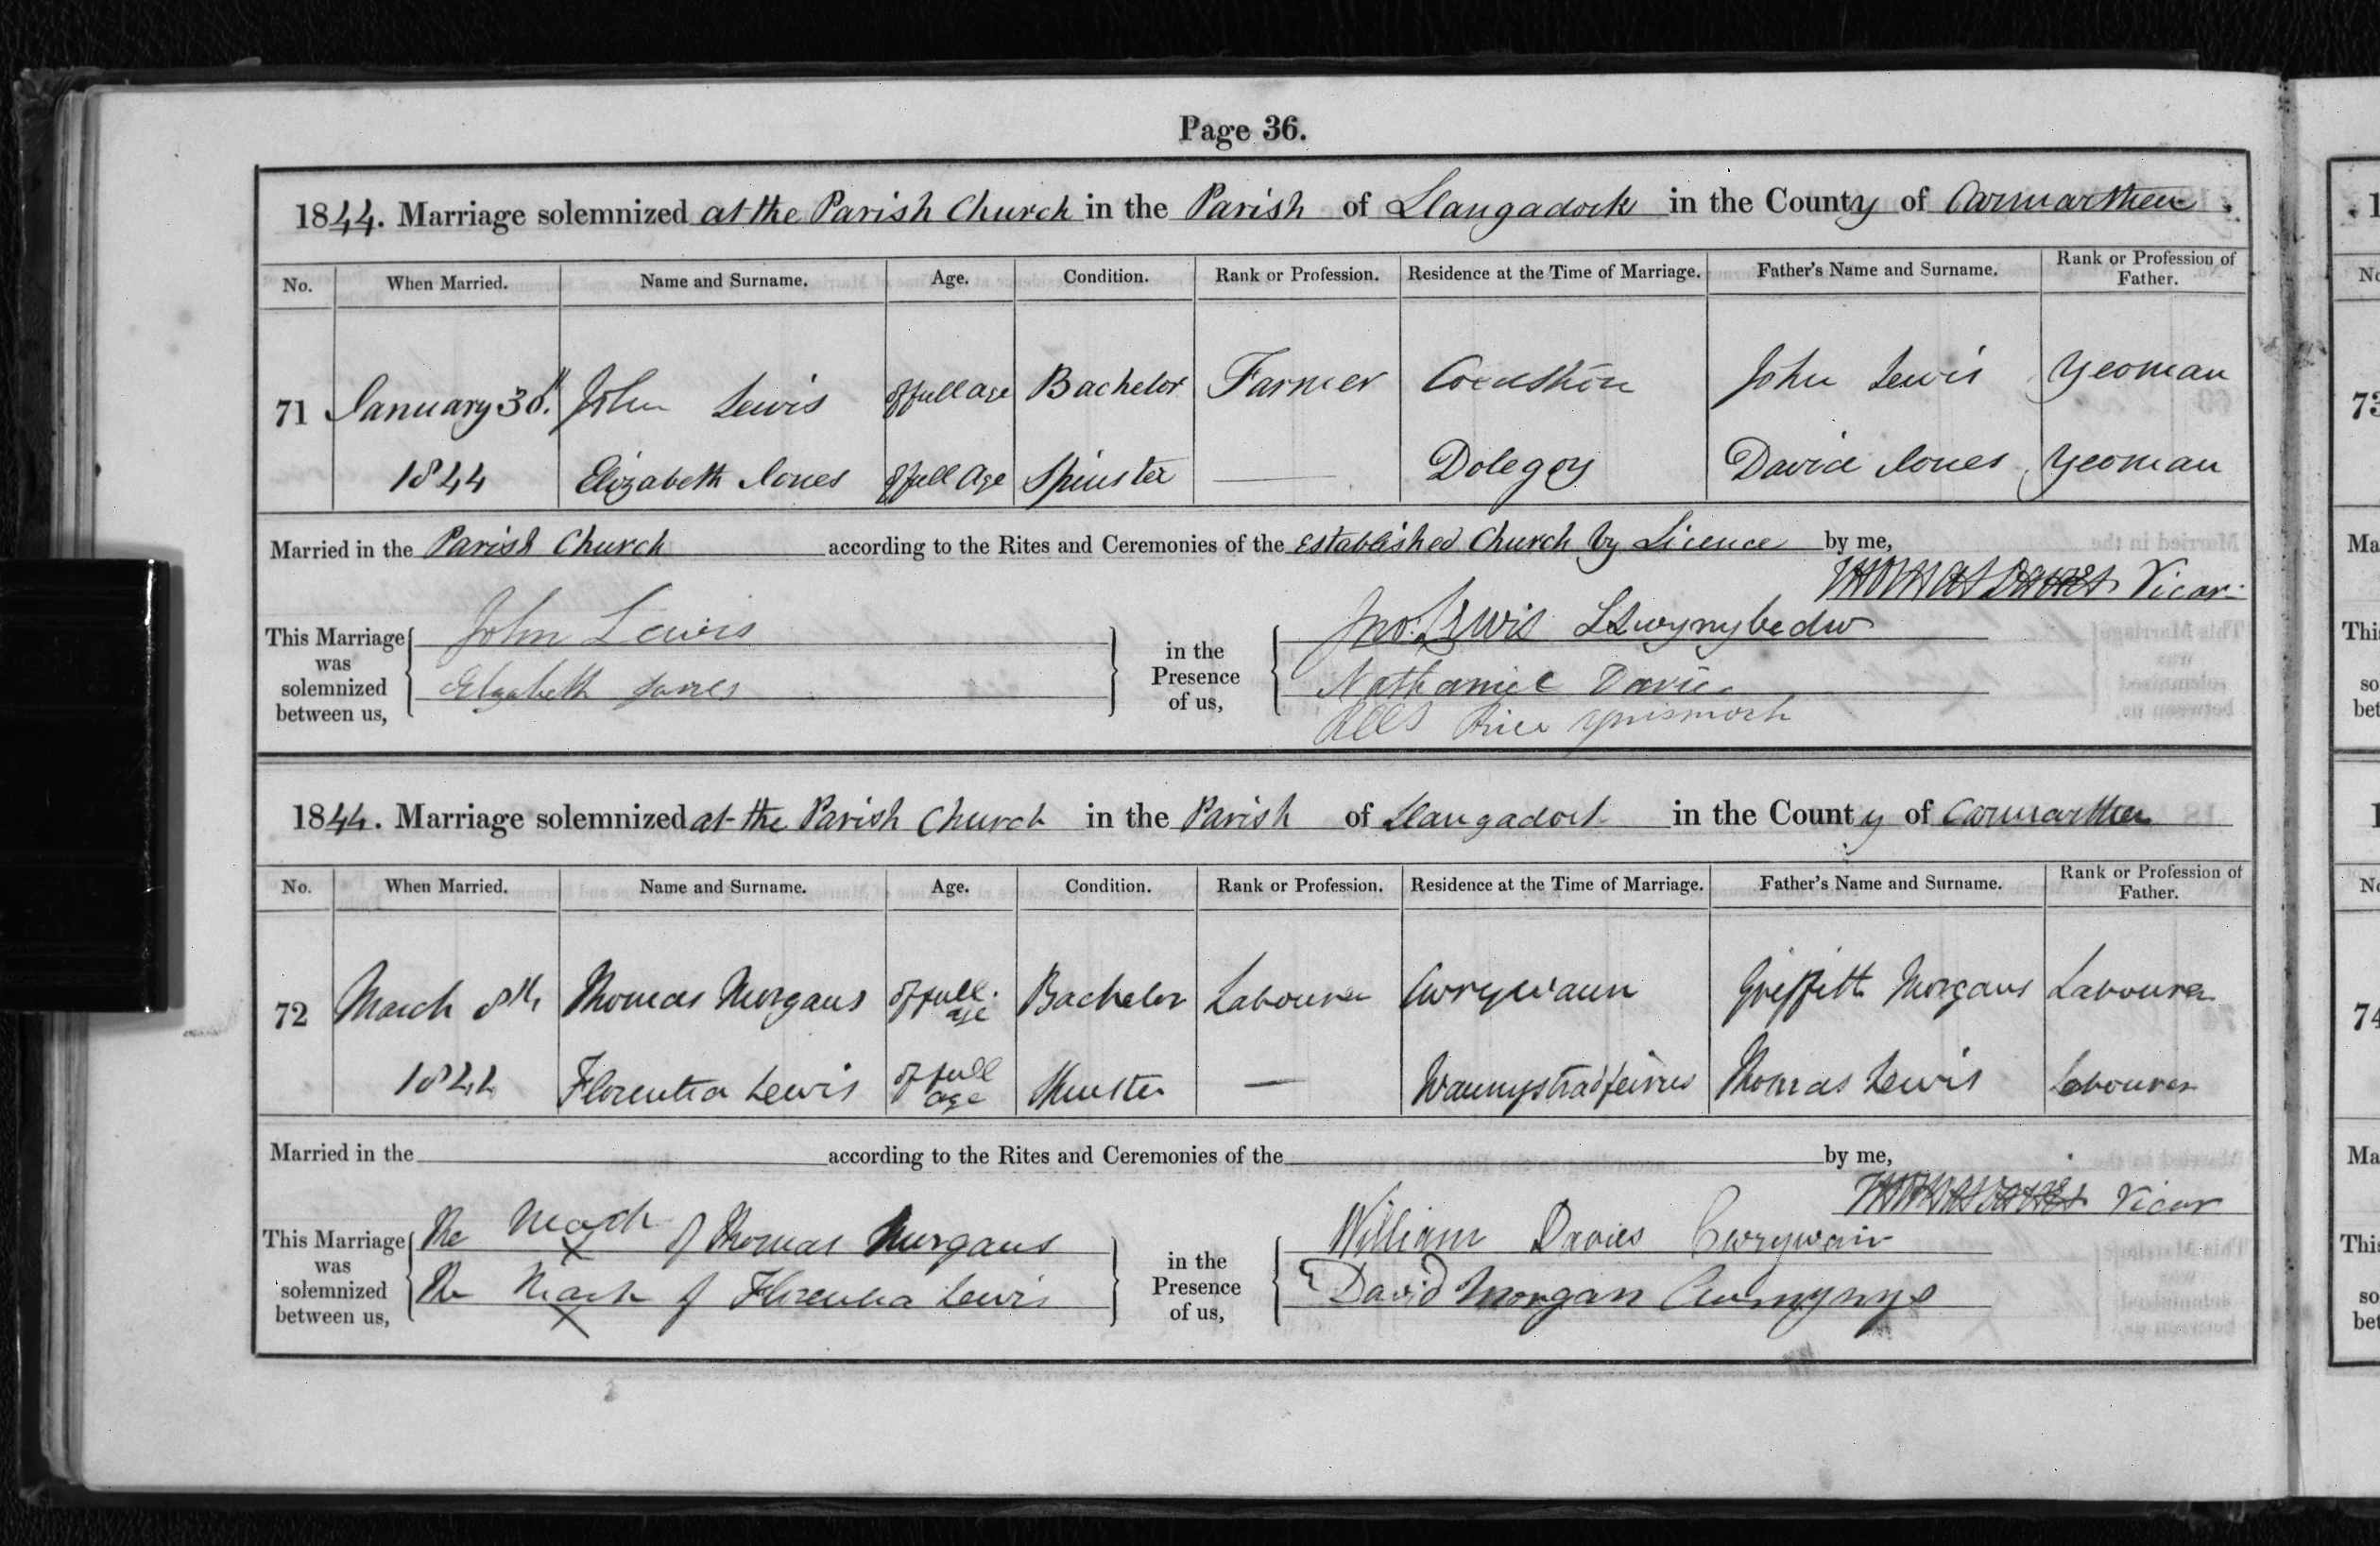 Page 36.
1844. Marriage solemnized at the Parish Church in the Parish of Llangadock in the County of Carmarthen.
No. When Married. Name and Surname. Age. Condition. Rank or Profession. Residence at the Time of Marriage. Father's Name and Surname. Rank or Profession of Father.
71 January 30th. John Lewis of full age Bachelor Farmer John Lewis Yeoman
1844 Elizabeth Jones of full Age Spinster — Dolegoy David Jones Yeoman
Married in the Parish Church according to the Rites and Ceremonies of the Established Church by Licence by me,
Thomas Davies Vicar.
This Marriage was solemnized between us, John Lewis in the Presence of us, Jno. Lewis Llwynybedw
Elizabeth Jones Nathaniel Davies
Rees Price
1844. Marriage solemnized at the Parish Church in the Parish of Llangadock in the County of Carmarthen
No. When Married. Name and Surname. Age. Condition. Rank or Profession. Residence at the Time of Marriage. Father's Name and Surname. Rank or Profession of Father.
72 March 8th Thomas Morgans of full age Bachelor Labourer Cwrywaun Griffith Morgans Labourer
1844 Florentia Lewis of full age Spinster — Thomas Lewis Labourer
Married in the according to the Rites and Ceremonies of the by me,
Thomas Davies Vicar
This Marriage was solemnized between us, The Mark X of Thomas Morgans in the Presence of us, William Davies
The Mark X of Florentia Lewis David Morgan